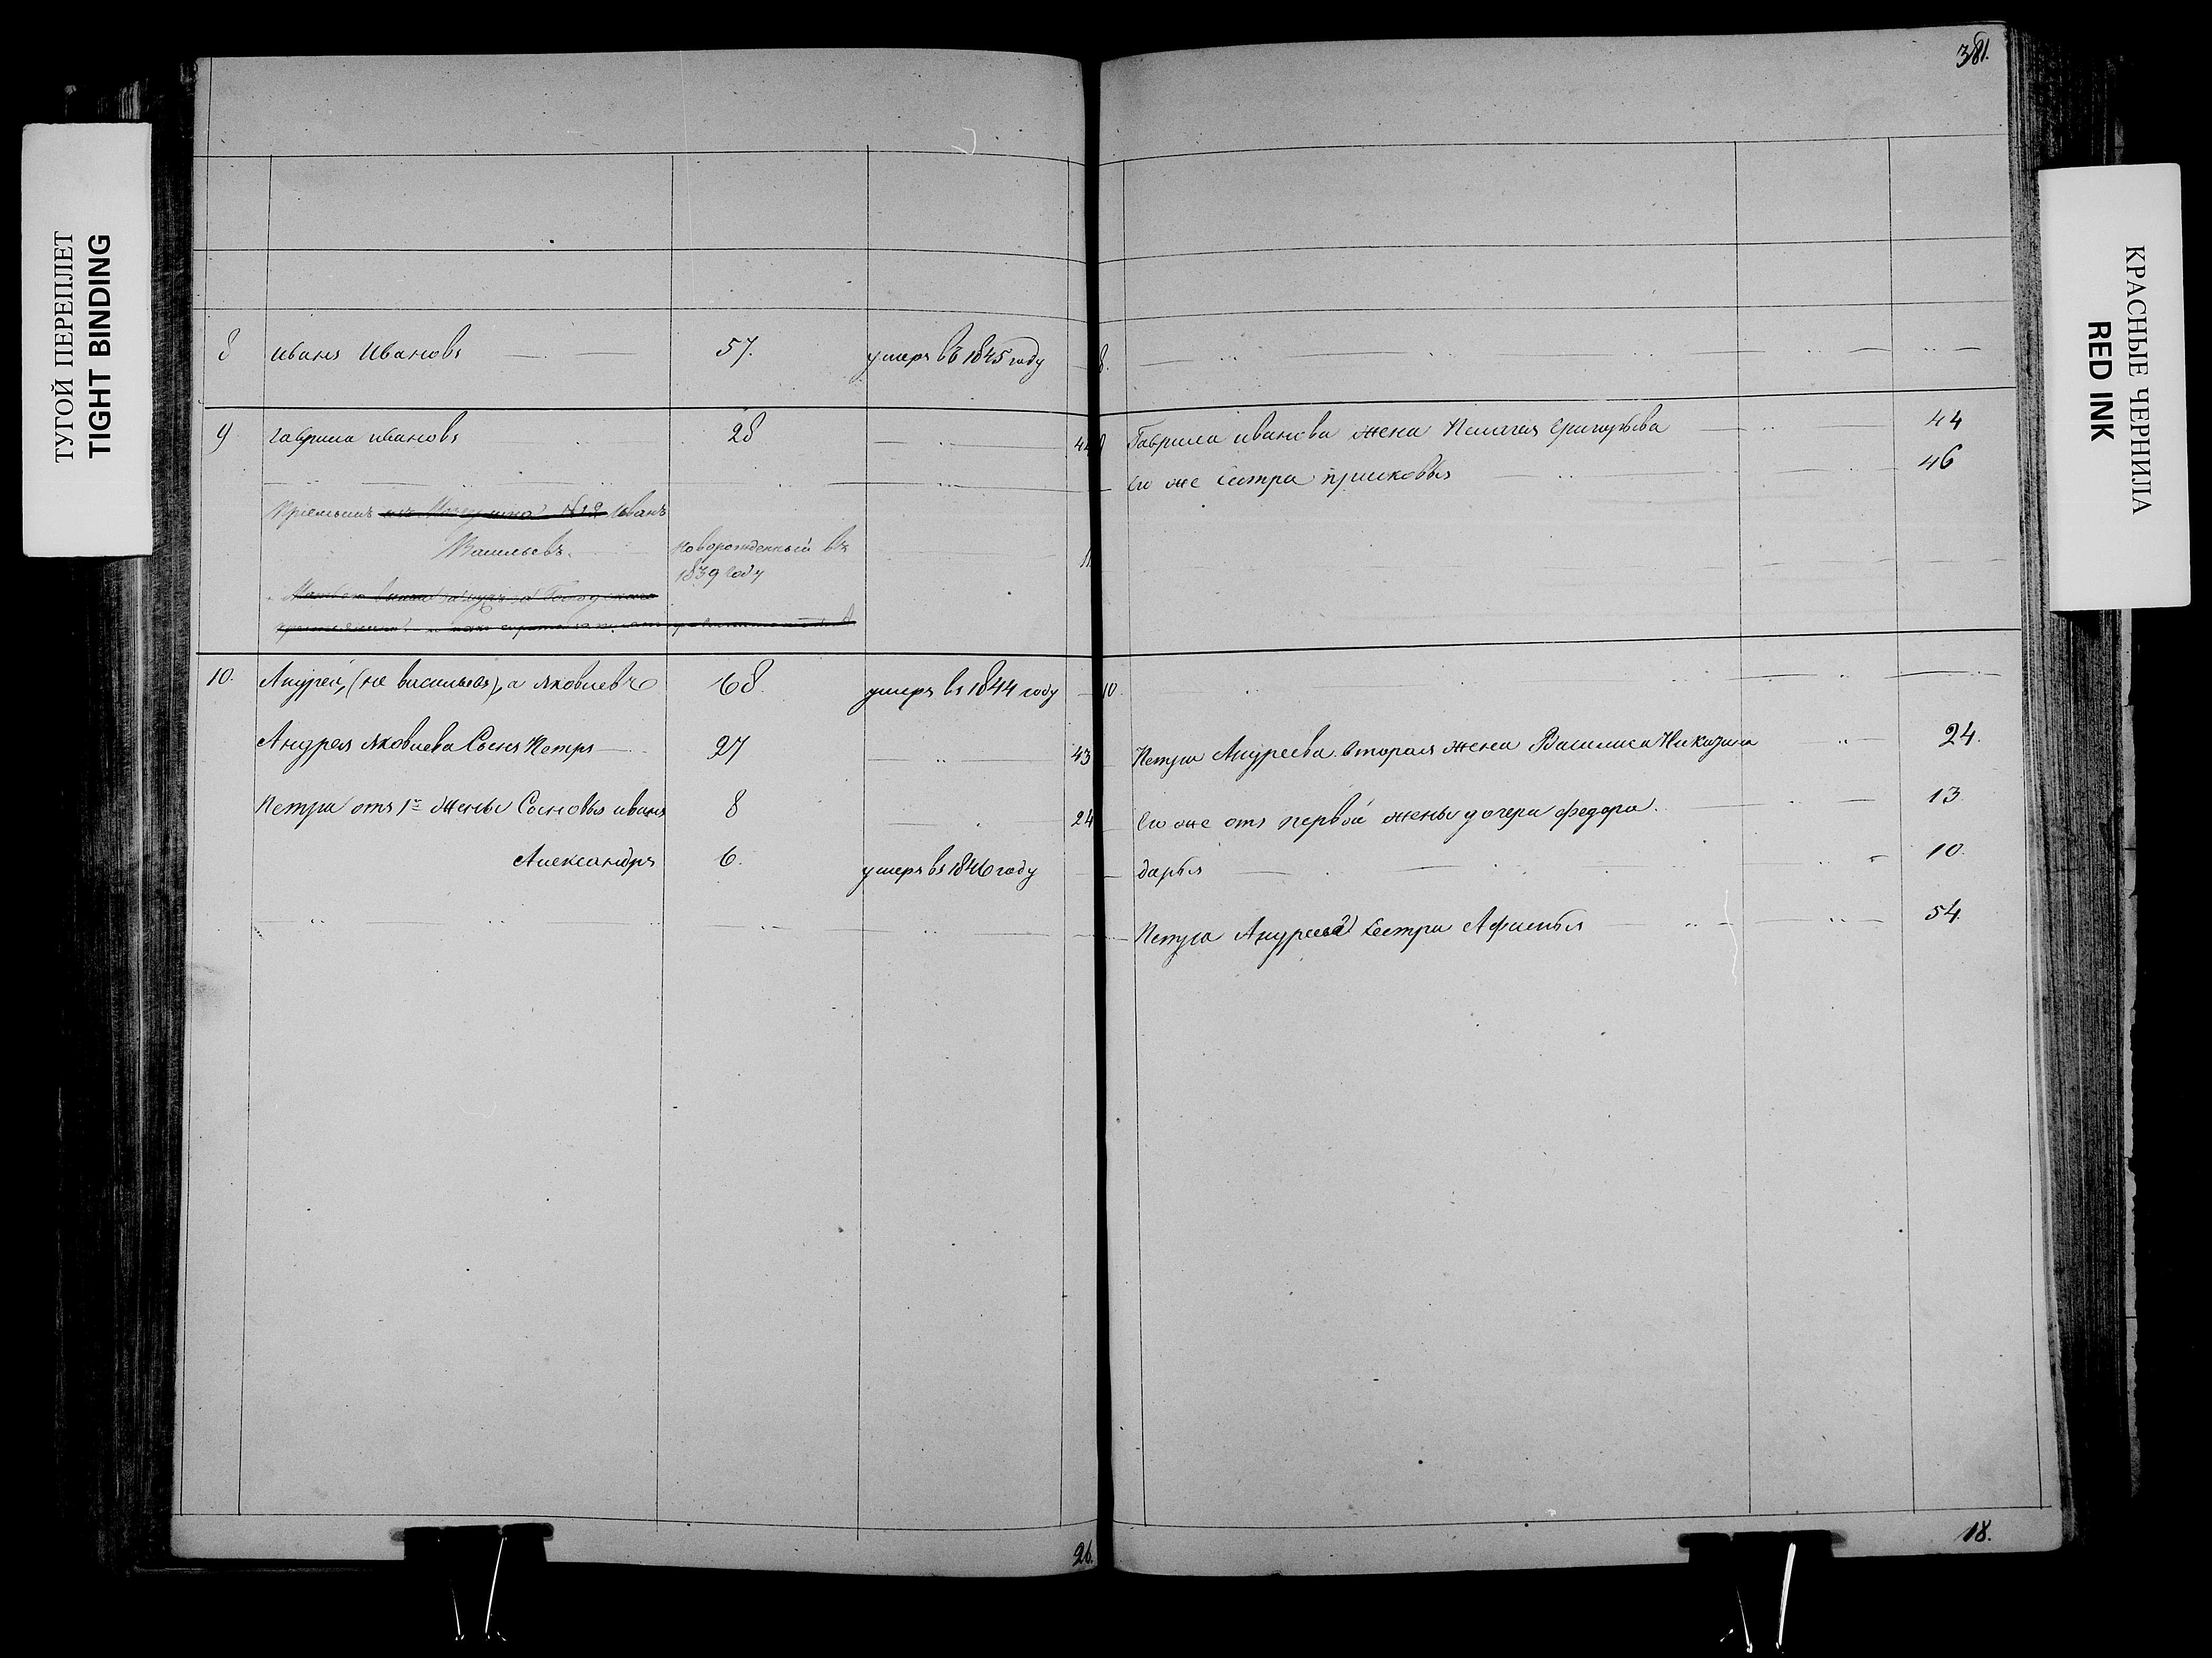 381.
ТУГОЙ ПЕРЕПЛЕТ
TIGHT BINDING
8 иванъ Ивановъ 57. умеръ въ 1845 году
9 гаврила ивановъ 28 44
Пріемышъ Иванъ
Васильевъ. новорожденный въ 11
1839 году
10. Андрей, (не васильевъ), а яковлевъ 68. умеръ въ 1844 году
Андрея яковлева Сынъ Петръ 27 43
Петра отъ 1й жены Сыновья иванъ 8 24
Александръ 6. умеръ въ 1846 году
26.
8.
9 Гаврила иванова жена Пелагея григорьева 44
Его же сестра прасковья 46
10.
Петра Андреева вторая жена Василиса Никитина 24.
Его же отъ первой жены дочери федора. 13.
дарья 10.
Петра Андреева сестра Афимья 54.
18.
КРАСНЫЕ ЧЕРНИЛА
RED INK